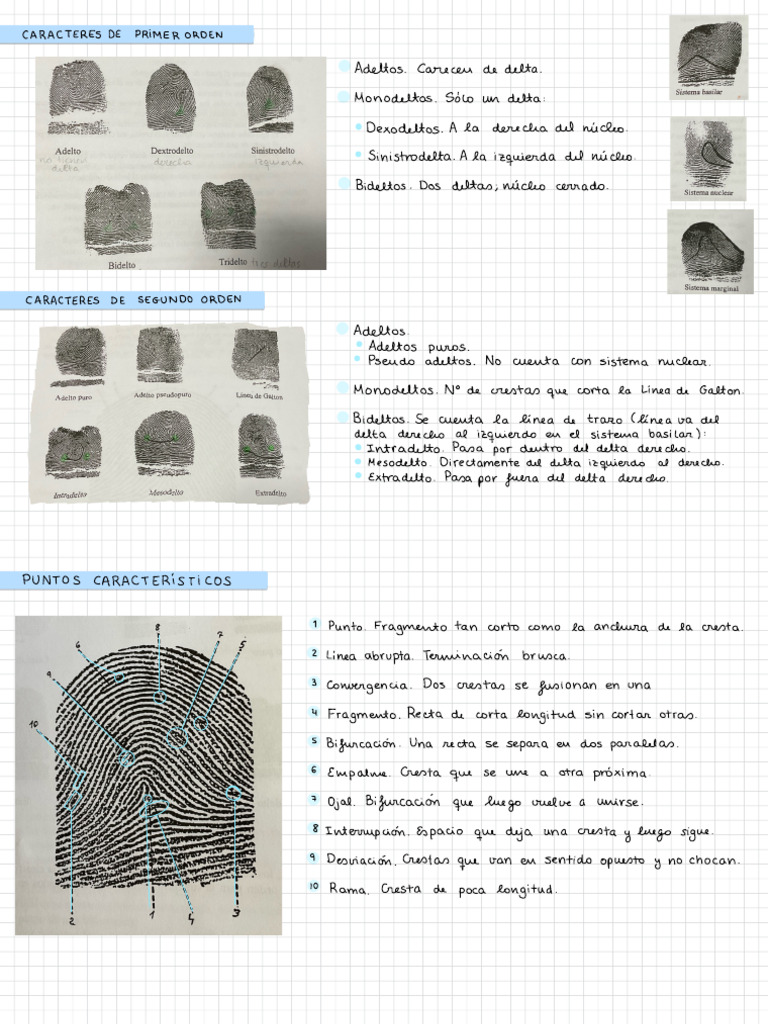 CARACTERES DE PRIMER ORDEN
Adelto
no tienen delta
Dextrodelto
derecha
Sinistrodelto
izquierda
Bidelto
Tridelto tres deltas
Adeltos. Carecen de delta.
Monodeltos. Sólo un delta:
Dexodeltos. A la derecha del núcleo.
Sinistrodelta. A la izquierda del núcleo.
Bideltos. Dos deltas; núcleo cerrado.
Sistema basilar
Sistema nuclear
Sistema marginal
CARACTERES DE SEGUNDO ORDEN
Adelto puro
Adelto pseudopuro
Línea de Galton
Intradelto
Mesodelto
Extradelto
Adeltos.
Adeltos puros.
Pseudo adeltos. No cuenta con sistema nuclear.
Monodeltos. Nº de crestas que corta la Línea de Galton.
Bideltos. Se cuenta la línea de trazo (línea va del
delta derecho al izquierdo en el sistema basilar):
Intradelto. Pasa por dentro del delta derecho.
Mesodelto. Directamente del delta izquierdo al derecho.
Extradelto. Pasa por fuera del delta derecho.
PUNTOS CARACTERÍSTICOS
8
7
5
6
9
10
2
1
4
3
1 Punto. Fragmento tan corto como la anchura de la cresta.
2 Línea abrupta. Terminación brusca.
3 Convergencia. Dos crestas se fusionan en una
4 Fragmento. Recta de corta longitud sin cortar otras.
5 Bifurcación. Una recta se separa en dos paralelas.
6 Empalme. Cresta que se une a otra próxima.
7 Ojal. Bifurcación que luego vuelve a unirse.
8 Interrupción. Espacio que deja una cresta y luego sigue.
9 Desviación. Crestas que van en sentido opuesto y no chocan.
10 Rama. Cresta de poca longitud.